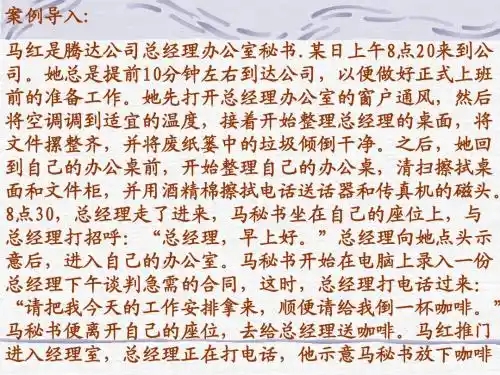 案例导入:
马红是腾达公司总经理办公室秘书.某日上午8点20来到公
司。她总是提前10分钟左右到达公司，以便做好正式上班
前的准备工作。她先打开总经理办公室的窗户通风，然后
将空调调到适宜的温度，接着开始整理总经理的桌面，将
文件摞整齐，并将废纸篓中的垃圾倾倒干净。之后，她回
到自己的办公桌前，开始整理自己的办公桌，清扫擦拭桌
面和文件柜，并用酒精棉擦拭电话送话器和传真机的磁头。
8点30，总经理走了进来，马秘书坐在自己的座位上，与
总经理打招呼：“总经理，早上好。”总经理向她点头示
意后，进入自己的办公室。马秘书开始在电脑上录入一份
总经理下午谈判急需的合同，这时，总经理打电话过来：
“请把我今天的工作安排拿来，顺便请给我倒一杯咖啡。”
马秘书便离开自己的座位，去给总经理送咖啡。马红推门
进入经理室，总经理正在打电话，他示意马秘书放下咖啡